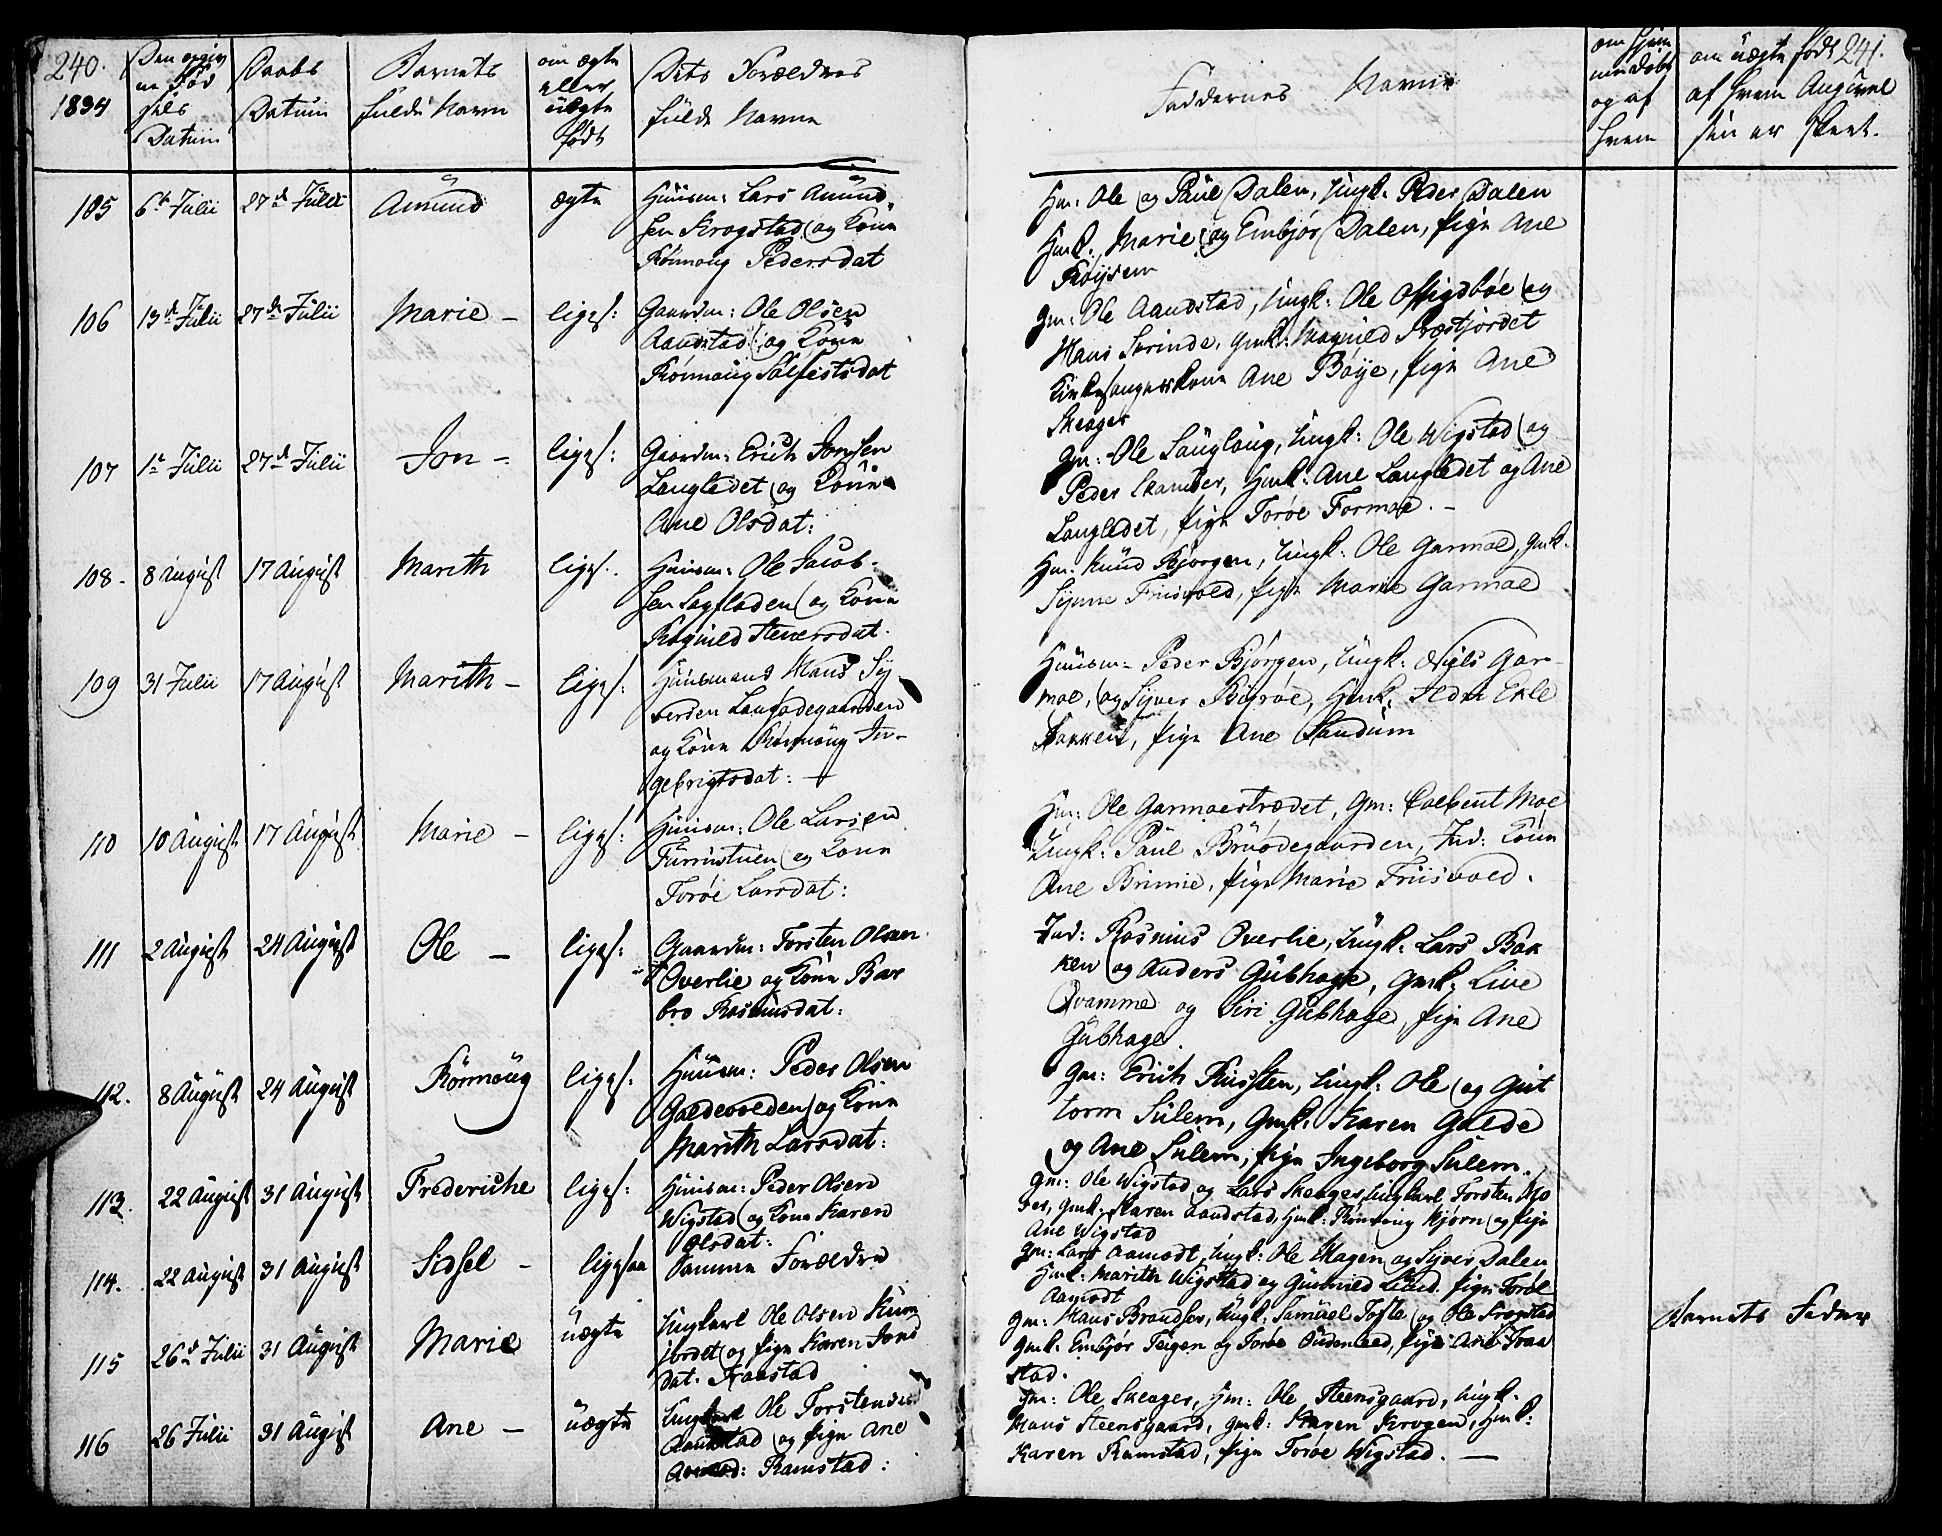 240.
1834
Den opgiv
ne Fød
sels
Datum
Daabs
Datum
Barnets
fulde Navn
om ægte
eller
uægte
født
Dets Forældres
fulde Navne
Faddernes Navne
om hjem
medøbt
og af
hvem
om uægte født 241.
af hvem Angivel
sen er skeet.
105
6te Julii
27de Julii
Amund
ægte
Huusm: Lars Amund
sen Krogstad og Kone
Rønnoug Pedersdat
Hm: Ole og Paul Dalen, Ungk: Peder Dalen
Hmk: Marie og Embjør Dalen, Pige Ane
Røijsem
106
13de Julii
27de Julii
Marie –
liges:
Gaardm: Ole Olsen
Aandstad og Kone
Rønnoug Solfestsdat
Gm: Ole Aandstad, Ungk: Ole Offigsbøe og
Hans Skrinde, Gmk: Magnild Præstjordet
Kirkesangerskone Ane Bøye, Pige Ane
Skeager
107
1te Julii
27de Julii
Jon –
liges:
Gaardm: Erich Jonsen
Langledet og Kone
Ane Olsdat:
Gm: Ole Sougloug, Ungk: Ole Wigstad og
Peder Skamser, Hmk: Ane Langledet og Ane
Langledet, Pige Torøe Formoe. –
108-
8 August
17 August
Marith
ligef.
Huusm: Ole Jacob-
sen Sagfladen og Kone
Ragnild Stenersdat.
Hm: Knud Bjørgen, Ungk: Ole Garmoe, Gmk:
Synne Friisvold, Pige Marie Garmoe
109
31 Julii
17 August
Marith –
ligef:
Huusmand Hans Sy
versen Laurødegaarden
og Kone Rønnoug In-
gebrigtsdat: –
Huusm: Peder Bjørgen, Ungk: Niels Gar-
moe, og Syver Bigrøe, Hmk: Eldri Ekle
Bakken, Pige Ane Sandum
110
10 August
17 August
Marie –
ligef:
Huusm: Ole Larsen
Furrustuen og Kone
Torøe Larsdat:
Hm: Ole Garmoestrædet, Gm: Colbent Moe
Ungk: Paul Bruødegaarden, Ind: Kone
Ane Brimie, Pige Marie Friisvold.
111
2 August
24 August
Ole –
ligef:
Gaardm: Torsten Olsen
Øverlie og Kone Bar
bro Rasmusdat:
Ind: Rasmus Øverlie, Ungk: Lars Bak
ken og Anders Gubhage, Gmk: Live
Qvamme og Siri Gubhage, Pige Ane
Gubhage.
112.
8 August
24 August
Rønnoug
ligef:
Huusm: Peder Olsen
Galdesveden og Kone
Marith Larsdat:
Gm: Erich Rusten, Ungk: Ole og Gut
torm Sulem, Gmk: Karen Galde
og Ane Sulem, Pige Ingeborg Sulem.
113.
22 August
31 August
Frederiche
ligef:
Huusm: Peder Olsen
Wigstad og Kone Karen
Olsdat:
Gm: Ole Wigstad og Lars Skeager, Ungkarl Torsten
Gmk: Karen Aandstad, Hmk: Rønnoug Kjørn og Pige
Ane Wigstad
114.
22 August
31 August
Sidsel –
ligesaa
Samme Forældre
Gm: Lars Aamodt, Ungk: Ole Skagen og Syver Dalen
Hmk: Marith Wigstad og Gunnild Lund, Pige Torøe
Aamodt
115
26de Julii
31 August
Marie
uægte
Ungkarl Ole Olsen
jordet og Pige Karen Jons
dat. Fraastad
Gm: Hans Brandser, Ungk: Samuel Tofte og Ole Frogstad
Gmk: Embjør Teigen og Torøe Pige Ane Fraa
stad.
Barnets Fader
116
26 Julii
31 August
Ane –
uægte
Ungkarl Ole Torstensen
Aaukstad og Pige Ane
Ramstad:
Gm: Ole Skeager, Hm: Ole Steensgaard, Ungk.
Hans Steensgaard, Gmk: Karen Krogen, Hmk:
Karen Ramstad, Pige Torøe Wigstad. –